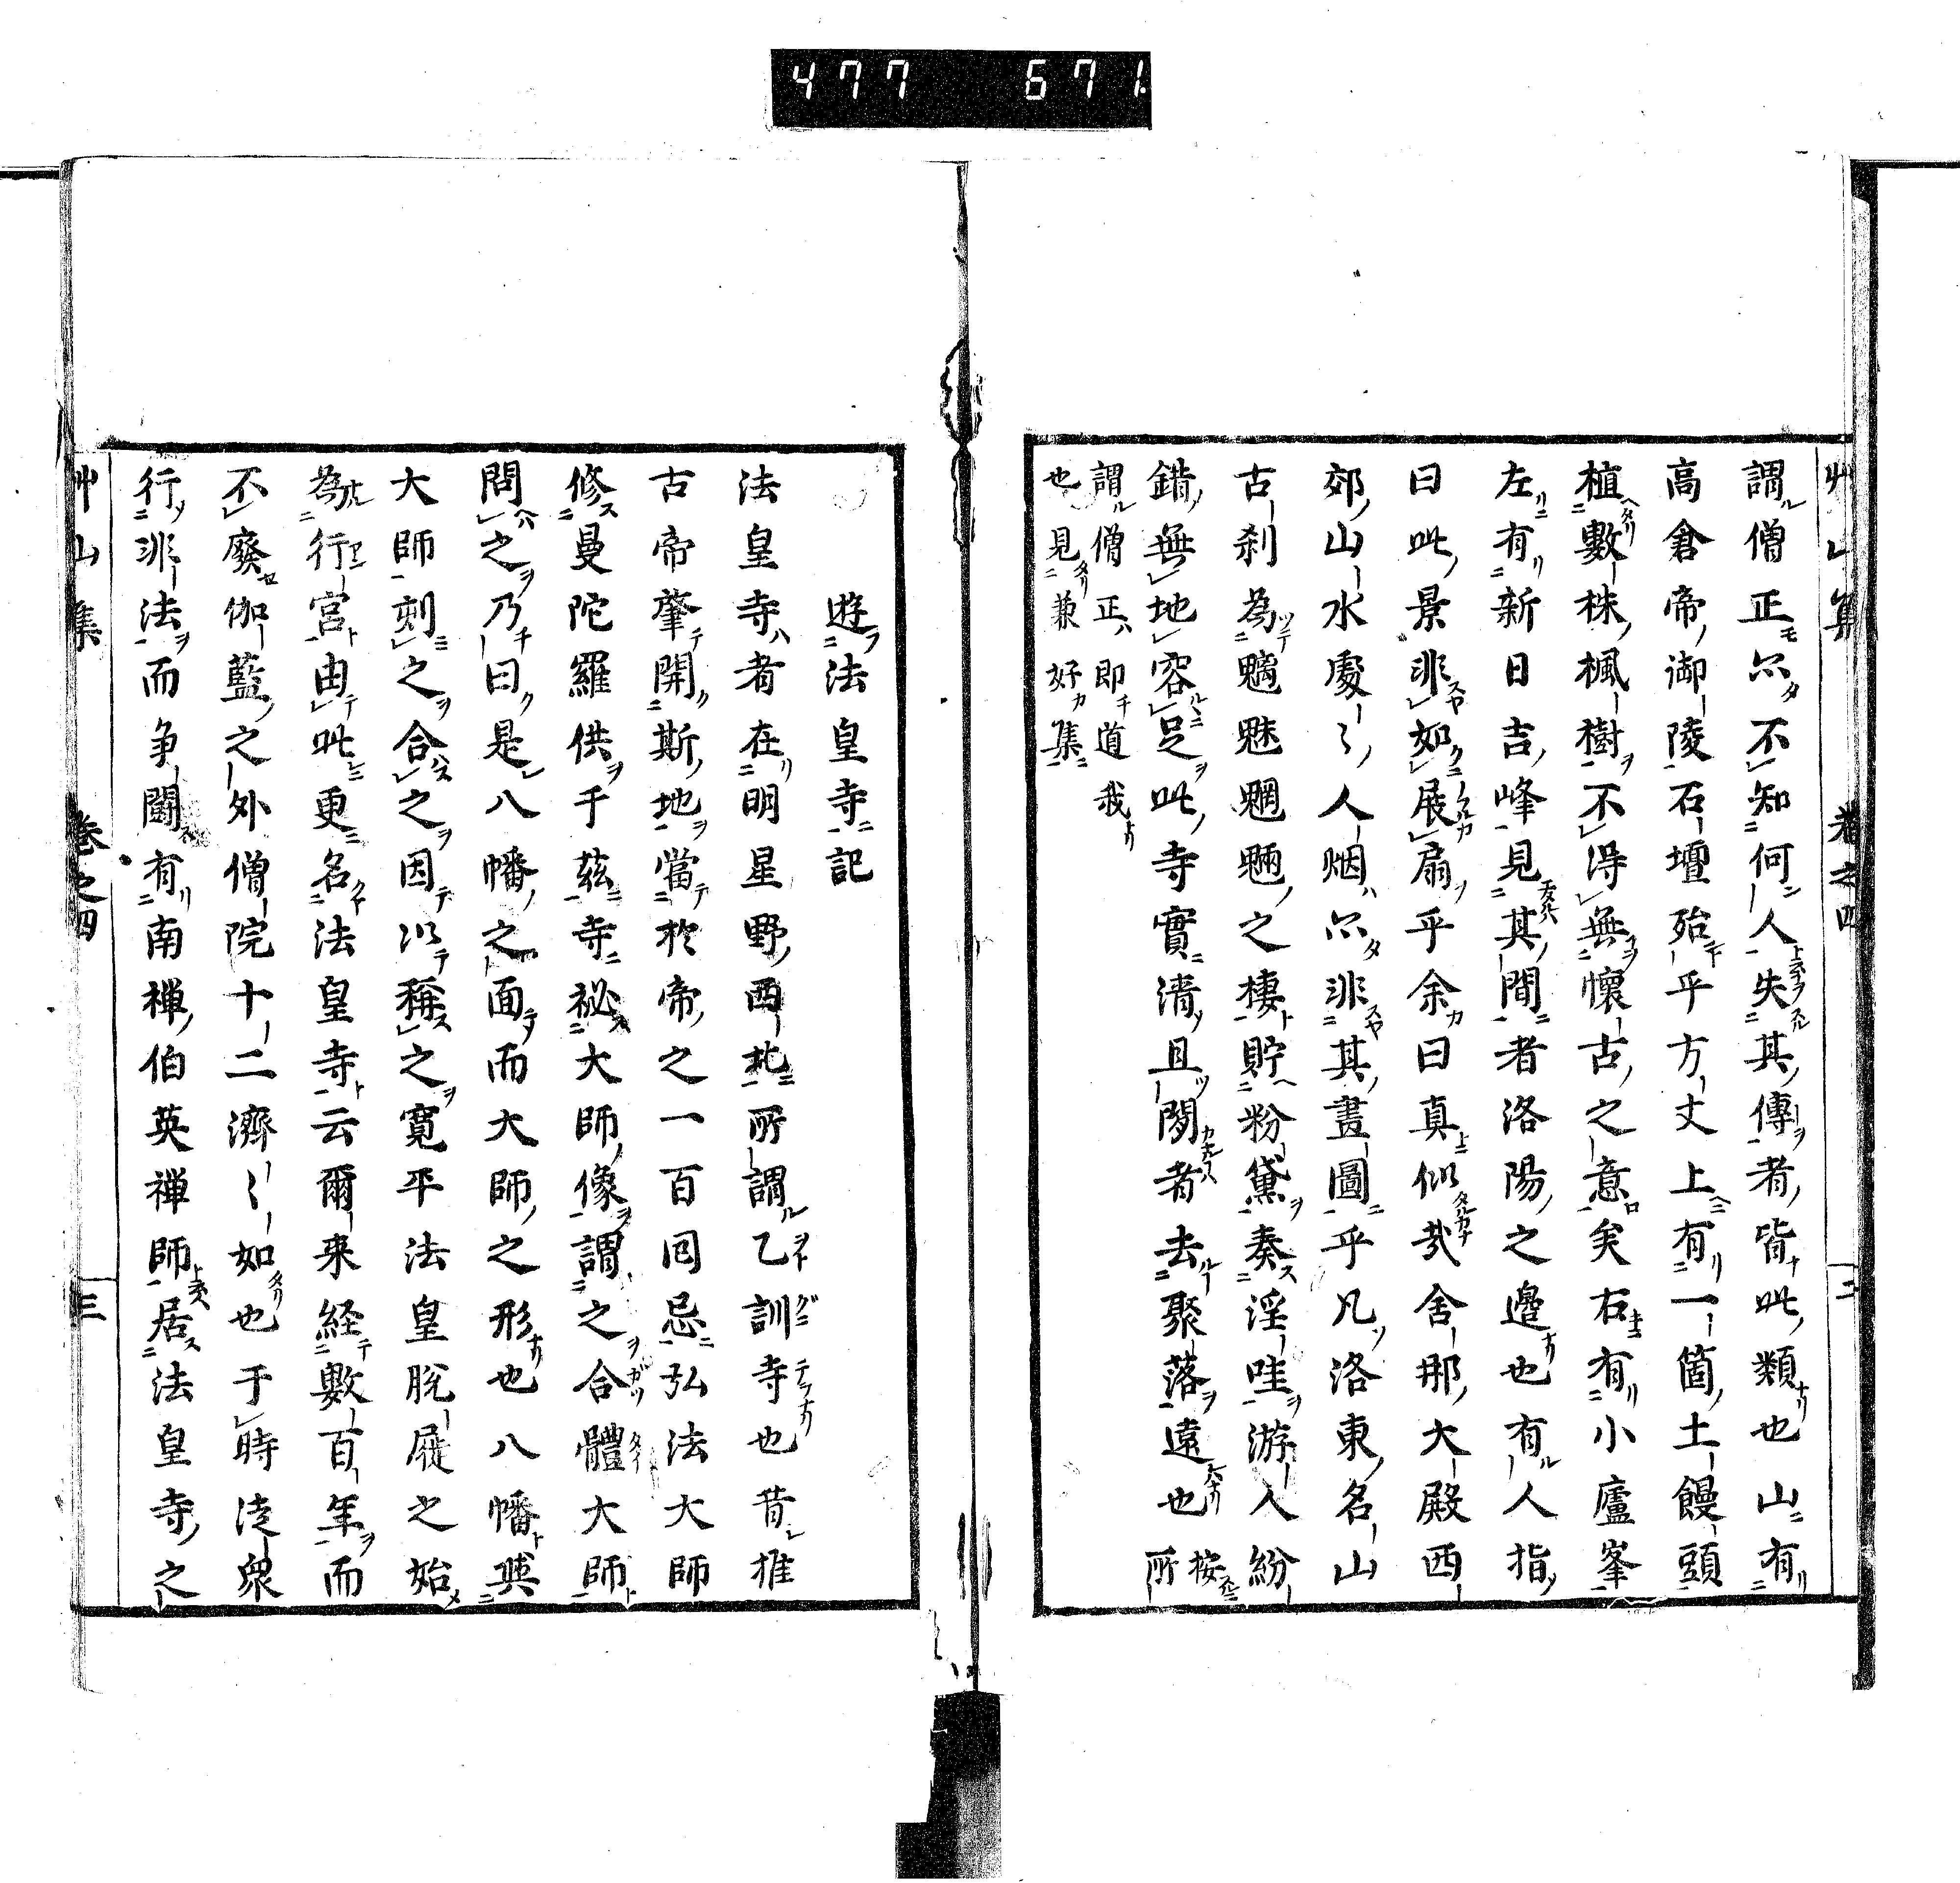 477 671
艸山集 卷之四 三
謂僧正亦不知何人失其傳者皆此類也山有
高倉帝御陵石壇殆乎方丈上有一箇土饅頭
植數株楓樹不得無懷古之意矣右有小廬峯
左有新日吉峰見其間者洛陽之邉也有人指
曰此景非如展扇乎余曰真似哉舍那大殿西
郊山水處〻人烟亦非其畫圖乎凡洛東名山
古刹為魑魅魍魎之棲貯粉黛奏淫哇游人紛
錯無地容足此寺實淸且閑者去聚落遠也 按所
謂僧正即道我
也見兼好集
遊法皇寺記
法皇寺者在明星野西北所謂乙訓寺也昔推
古帝肇開斯地當於帝之一百囘忌弘法大師
修曼陀羅供于茲寺祕大師像謂之合體大師
問之乃曰是八幡之面而大師之形也八幡與
大師刻之合之因以稱之寬平法皇脫屣之始
為行宮由此更名法皇寺云爾来経數百年而
不廢伽藍之外僧院十二濟〻如也于時徒衆
行非法而争鬪有南禅伯英禅師居法皇寺之
艸山集 卷之四 三